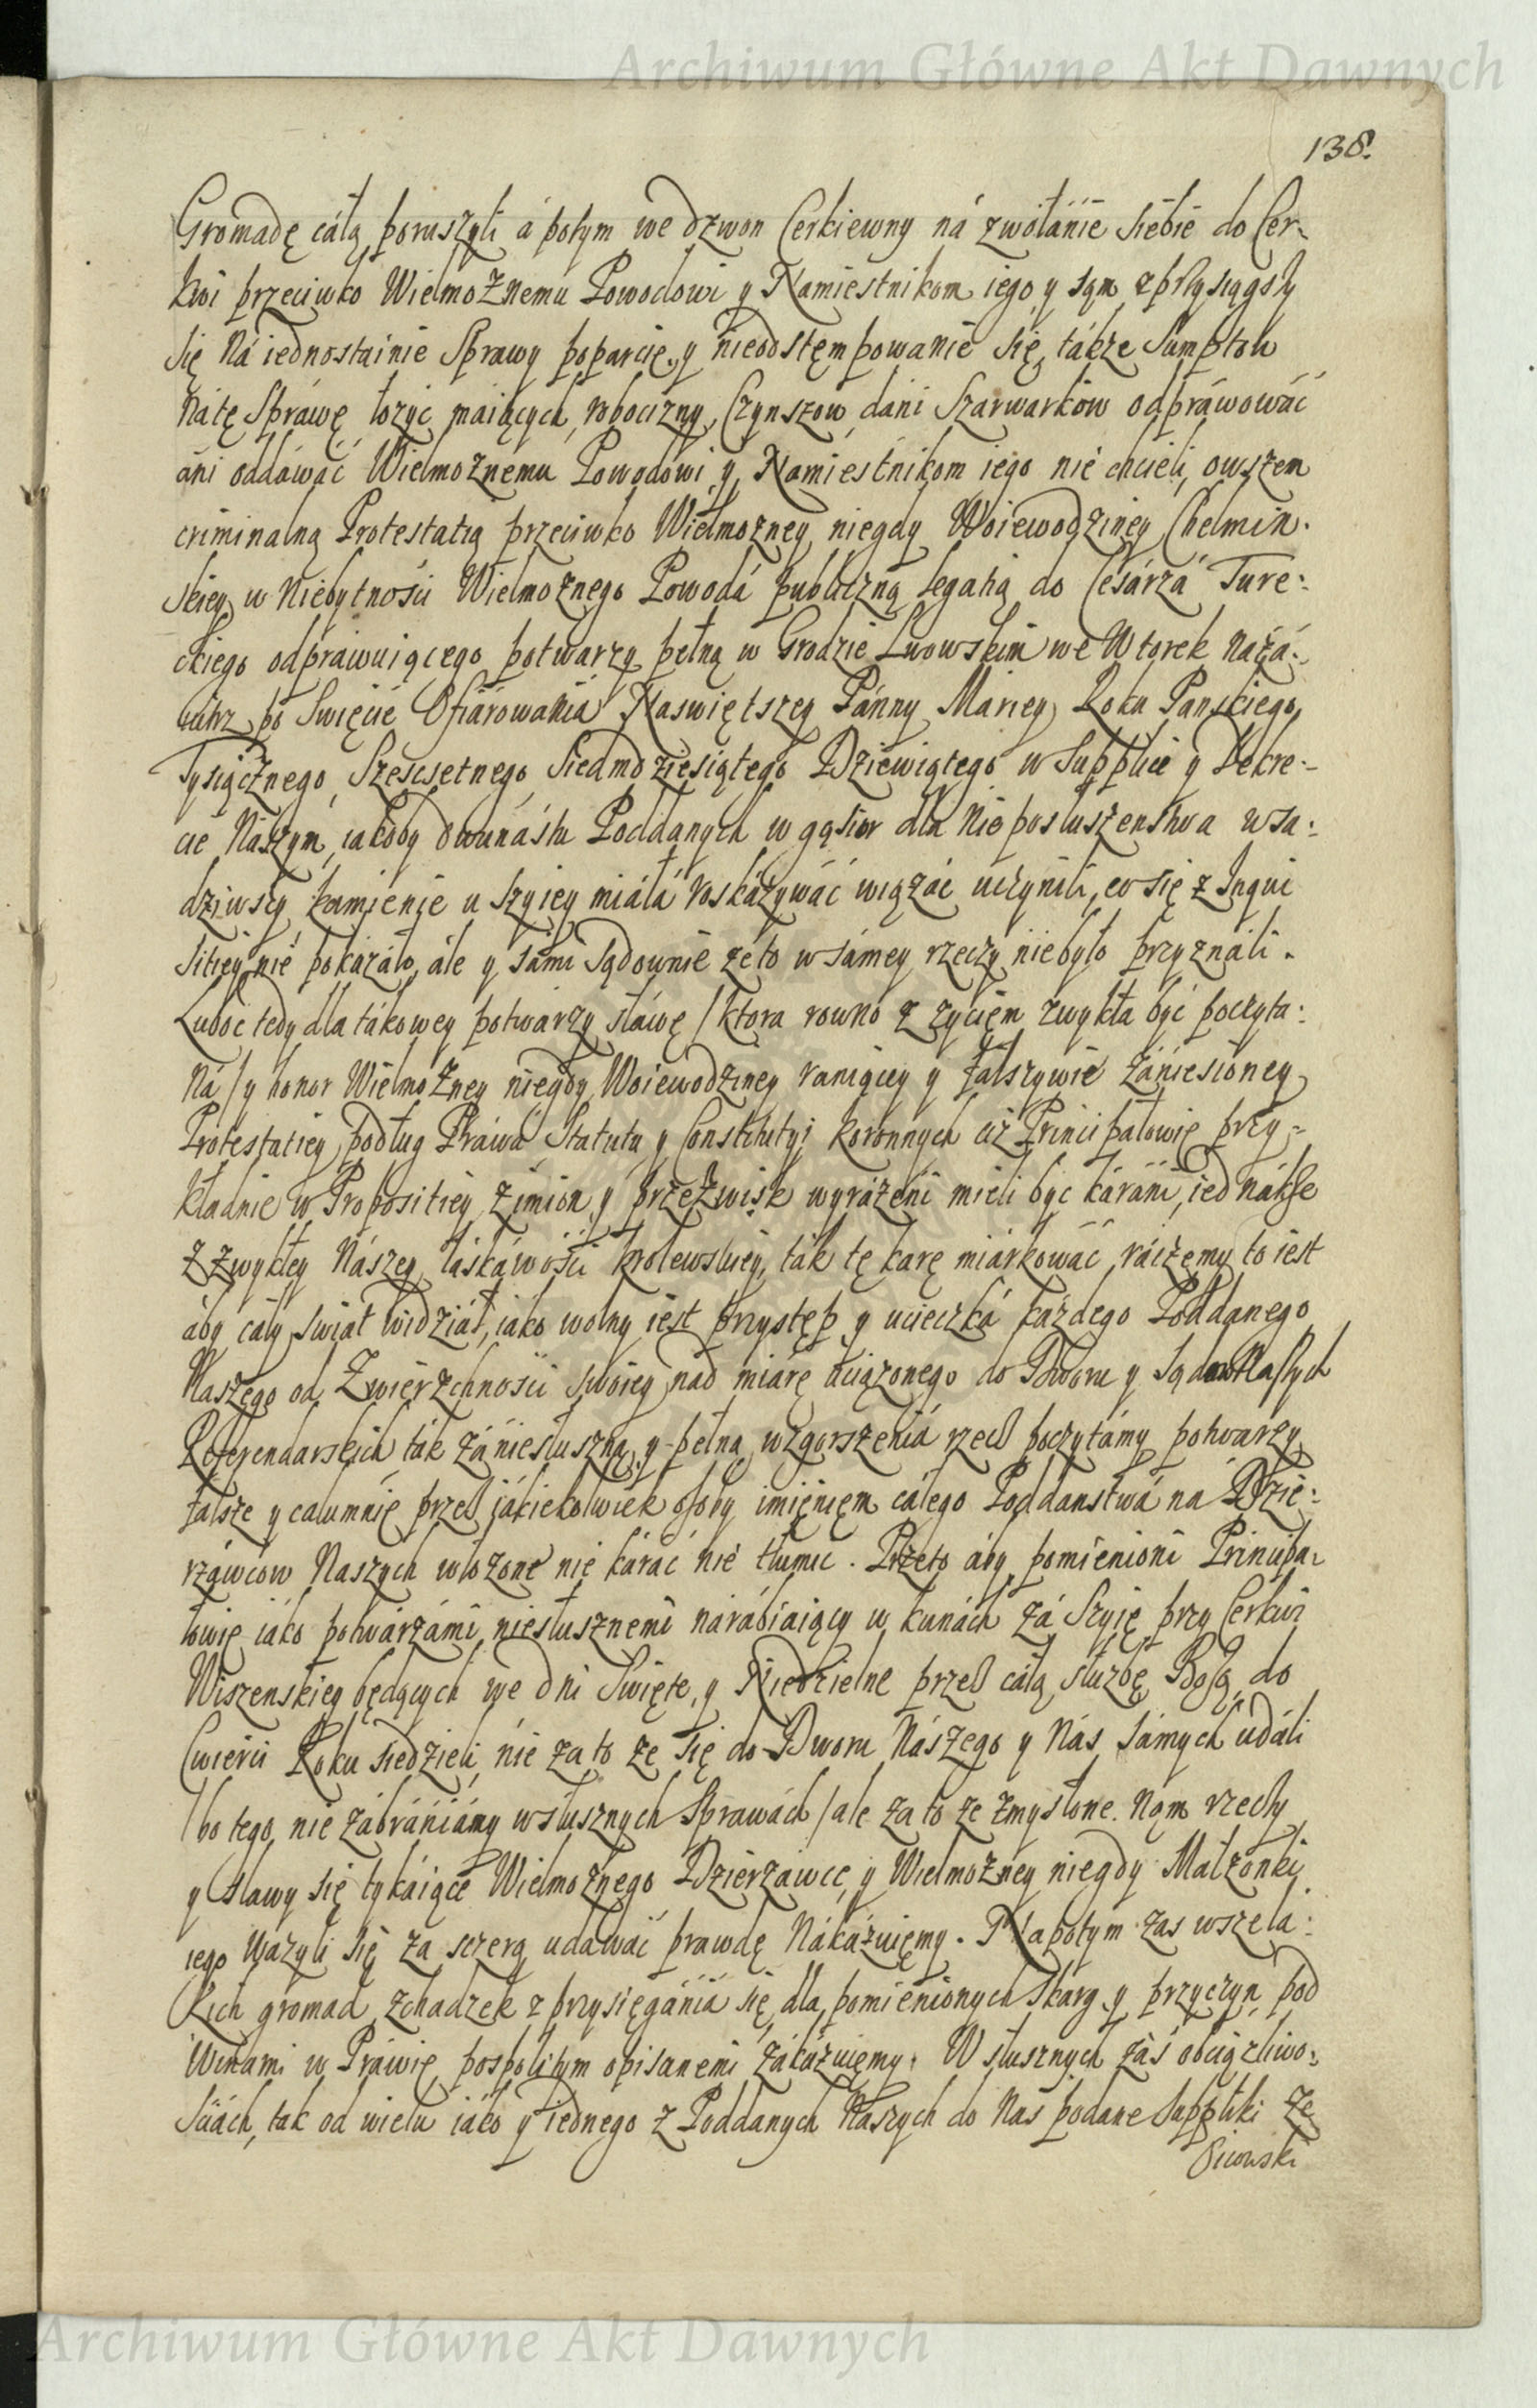 Archiwum Główne Akt Dawnych
138.
Gromadę cáłą poruszyli á potym we dzwon Cerkiewny ná zwołánie siebie do Cer-
kwi przeciwko Wielmożnemu Powodowi y Namiestnikom iego y sąm zprzysiągszy
się ná iednostainie Sprawy poparcie y nieodstęmpowanie się, tákze Sumptow
nátę Spráwę łozyc maiących, robocizny, Czynszow, dáni Szarwarkow odpráwowáć
áni oddáwáć Wielmoznemu Powodowi y Namiestnikom iego nie chcieli, owszem
criminalną Protestatią przeciwko Wielmozney niegdy Woiewodziney Chelmin-
skiey w Niebytnosci Wielmoznego Powodá publiczną legatią do Cesárzá Ture:
ckiego odprawuiącego potwarzy pełną w Grodzie Lwowskim we Wtorek náza:
iutrz po Swięcie Ofiárowania Naswiętszey Pánny Máriey Roku Panskiego
Tysiącznego, Szescsetnego, Siedmdziesiątego Dziewiątego w Supplice y Dekre:
cie Nászym, iakoby dwunástu Poddanych w gąsior dla Nieposłuszenstwa wsa:
dziwszy kamienie u szyiey miáłá roskázywáć wiązáć uczynili, co się z Inqui
sitiey nie pokazáło, ále y sámi Sądownie zeto w sámey rzeczy niebyło przyználi.
Luboc tedy dla tákowey potwarzy słáwę / ktora rowno z zycięm zwykła być poczyta:
ná / y honor Wielmożney niegdy Woiewodziney raniącey y fałszywie zániesioney
Protestatiey podług Práwa Statutu y Constitutyi koronnych ciż Principałowie przy:
kładnie w Propositiey z imion y przezwisk wyrázeni mieli być karáni, iednákze
z zwykłey Nászey łáskáwości krolewskiey, ták tę karę miárkowáć ráczemy to iest
áby cáły swiát widziáł, iáko wolny iest przystęp y ucieczká kázdego Poddanego
Naszego od Zwierzchności swoiey nád miárę uciązonego do Dworu y Sądow Naszych
Referendarskich ták zá niesłuszną y pełną wzgorszenia rzecz poczytámy potwarzy
fałsze y calumnie przez jákiekolwiek osoby imięniem cáłego Poddanstwá ná Dzie:
rzáwcow Naszych włozone nie káráć nie tłumic. Przeto áby pomienioni Principa-
łowie iáko potwárzámi niesłusznemi nárábiaiący w kunách zá Szyię przy Cerkwi
Wiszenskiey będących we dni Swięte y Niedzielne przez cáłą słuzbę Bozą do
Cwierci Roku siedzieli, nie za to ze się do Dworu Nászego y Nás sámych událi
/ bo tego nie zábrániámy w słusznych Sprawách / ale za to ze zmyslone Nam rzeczy
y sławy się tykáiące Wielmoznego Dzierzawce y Wielmozney niegdy Małzonki
iego wázyli się za sczerą udáwáć prawdę Nákázuięmy. Nápotym zas wszela:
kich gromad, zchadzek z przysięgánia się dla pomienionych Skarg y przyczyn pod
Winami w Práwie pospolitym opisanemi zákázuięmy. W słusznych záś obciązliwo:
sciách, tak od wielu iáko y iednego z Poddanych Naszych do Nas podane Suppliki Ze
Archiwum Główne Akt Dawnych